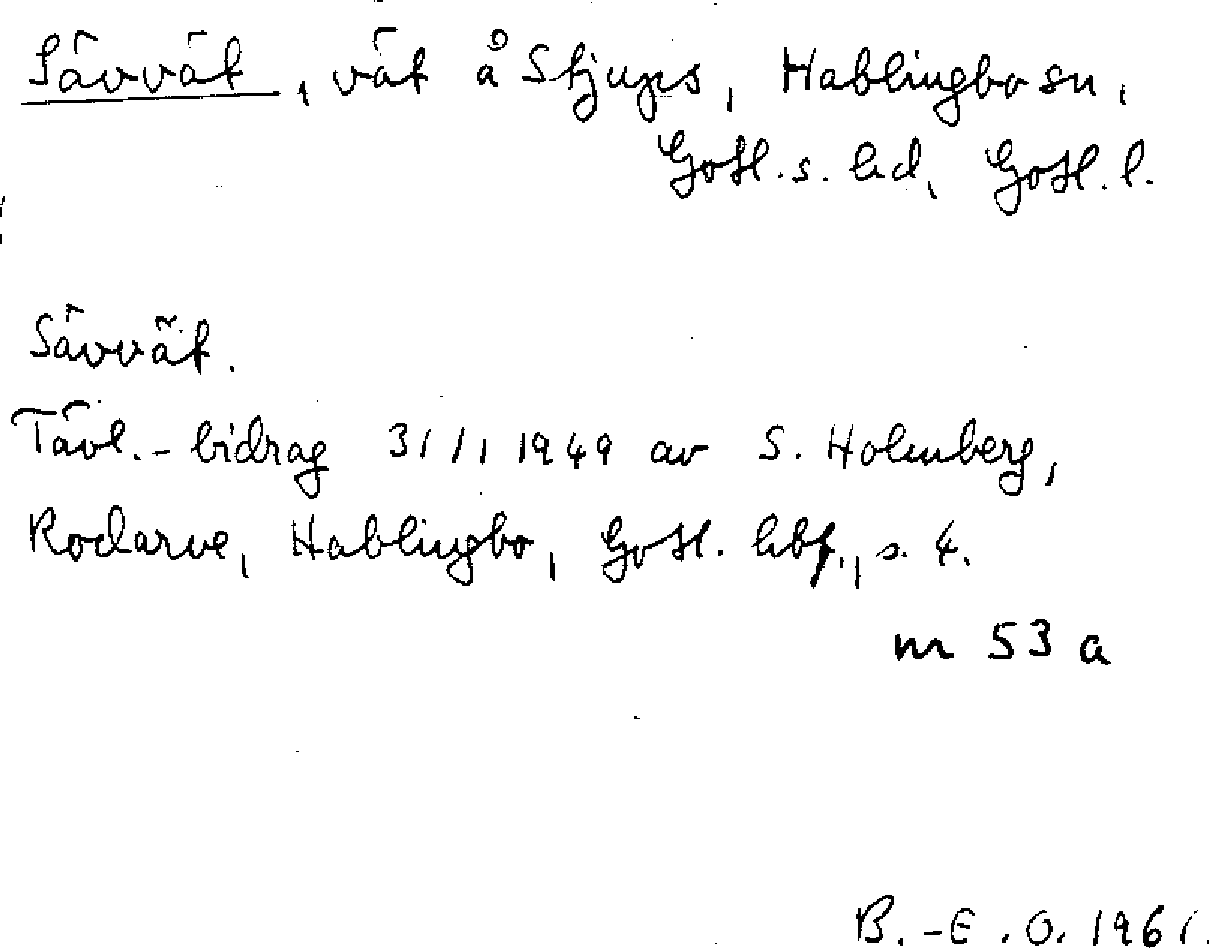 Sävvät, vät å Stjups, Hablingbo sn,
Gotl. s. hd, Gotl. l.
Sävvät.
Tävl.-bidrag 31/1 1949 av S. Holmberg,
Rodarve, Hablingbo, Gotl. hbf., s. 4.
m 53 a
B.-E. O. 1961.